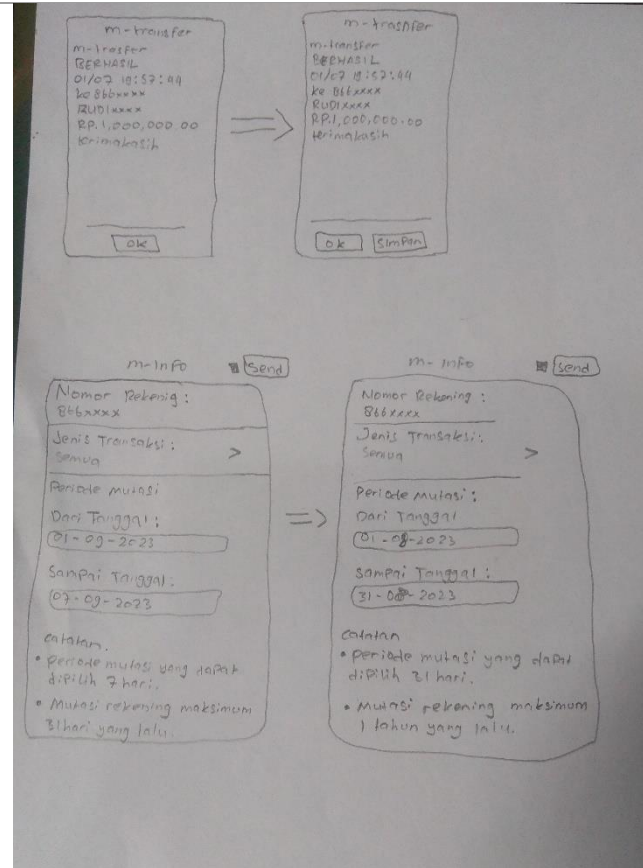 m-transfer
m-trasfer
BERHASIL
01/07 18:57:44
ke 866xxxx
RUDIxxxx
RP.1,000,000.00
terimakasih
OK
m-trasnfer
m-transfer
BERHASIL
01/07 18:57:44
ke 866xxxx
RUDIxxxx
RP.1,000,000.00
terimakasih
OK
Simpan
m-Info
Send
Nomor Rekenig :
866xxxx
Jenis Transaksi :
Semua
>
Periode mutasi
Dari Tanggal :
01-09-2023
Sampai Tanggal :
07-09-2023
catatan.
• periode mutasi yang dapat
dipilih 7 hari.
• Mutasi rekening maksimum
31 hari yang lalu.
m-Info
Send
Nomor Rekening :
866xxxx
Jenis Transaksi :
Semua
>
Periode mutasi :
Dari Tanggal
01-08-2023
Sampai Tanggal :
31-08-2023
catatan
• Periode mutasi yang dapat
dipilih 31 hari.
• Mutasi rekening maksimum
1 tahun yang lalu.